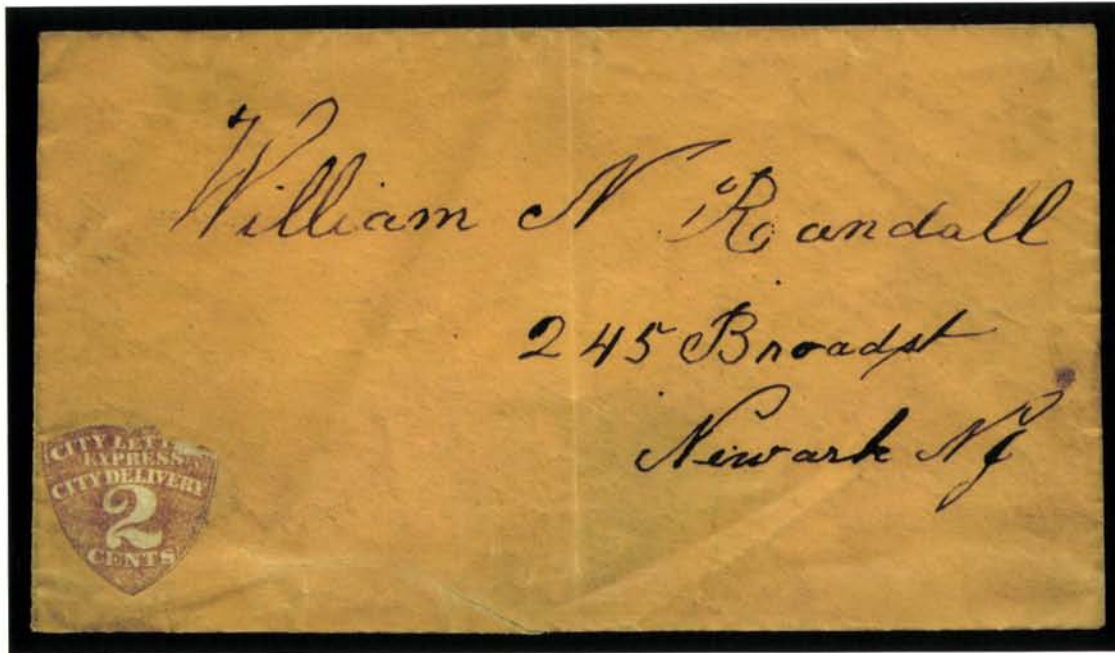 William N Randall
245 Broadst
Newark NJ
CITY LETT
EXPRESS
CITY DELIVERY
2
CENTS